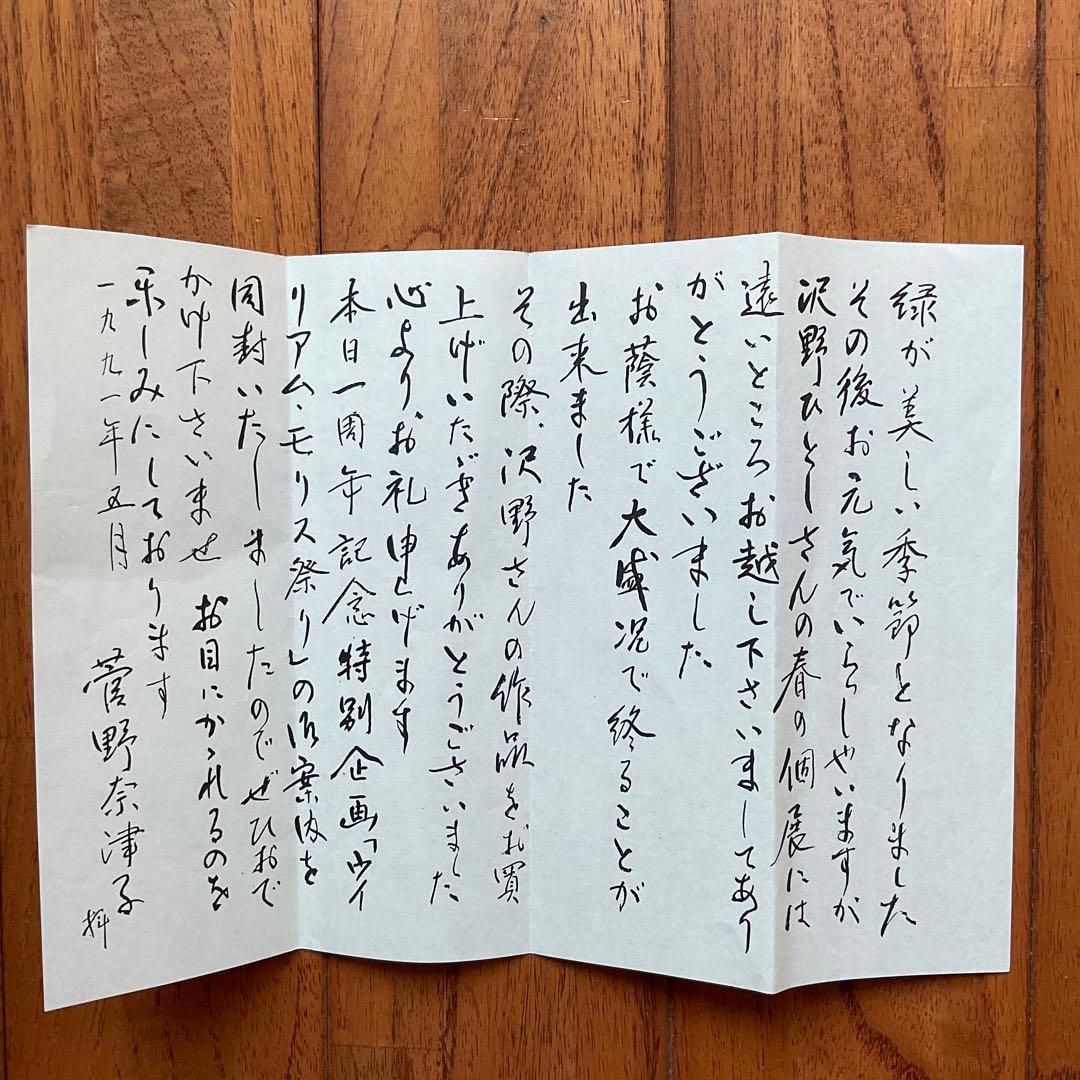 緑が美しい季節となりました
その後お元気でいらっしゃいますか
沢野ひとしさんの春の個展には
遠いところお越し下さいましてあり
がとうございました
お蔭様で大盛況で終ることが
出来ました
その際、沢野さんの作品をお買
上げいただきありがとうございました
心より、お礼申し上げます
本日一周年記念特別企画「ウイ
リアム・モリス祭り」の御案内を
同封いたしましたのでぜひおで
かけ下さいませ お目にかゝれるのを
楽しみにしております
一九九一年五月 菅野奈津子 拝